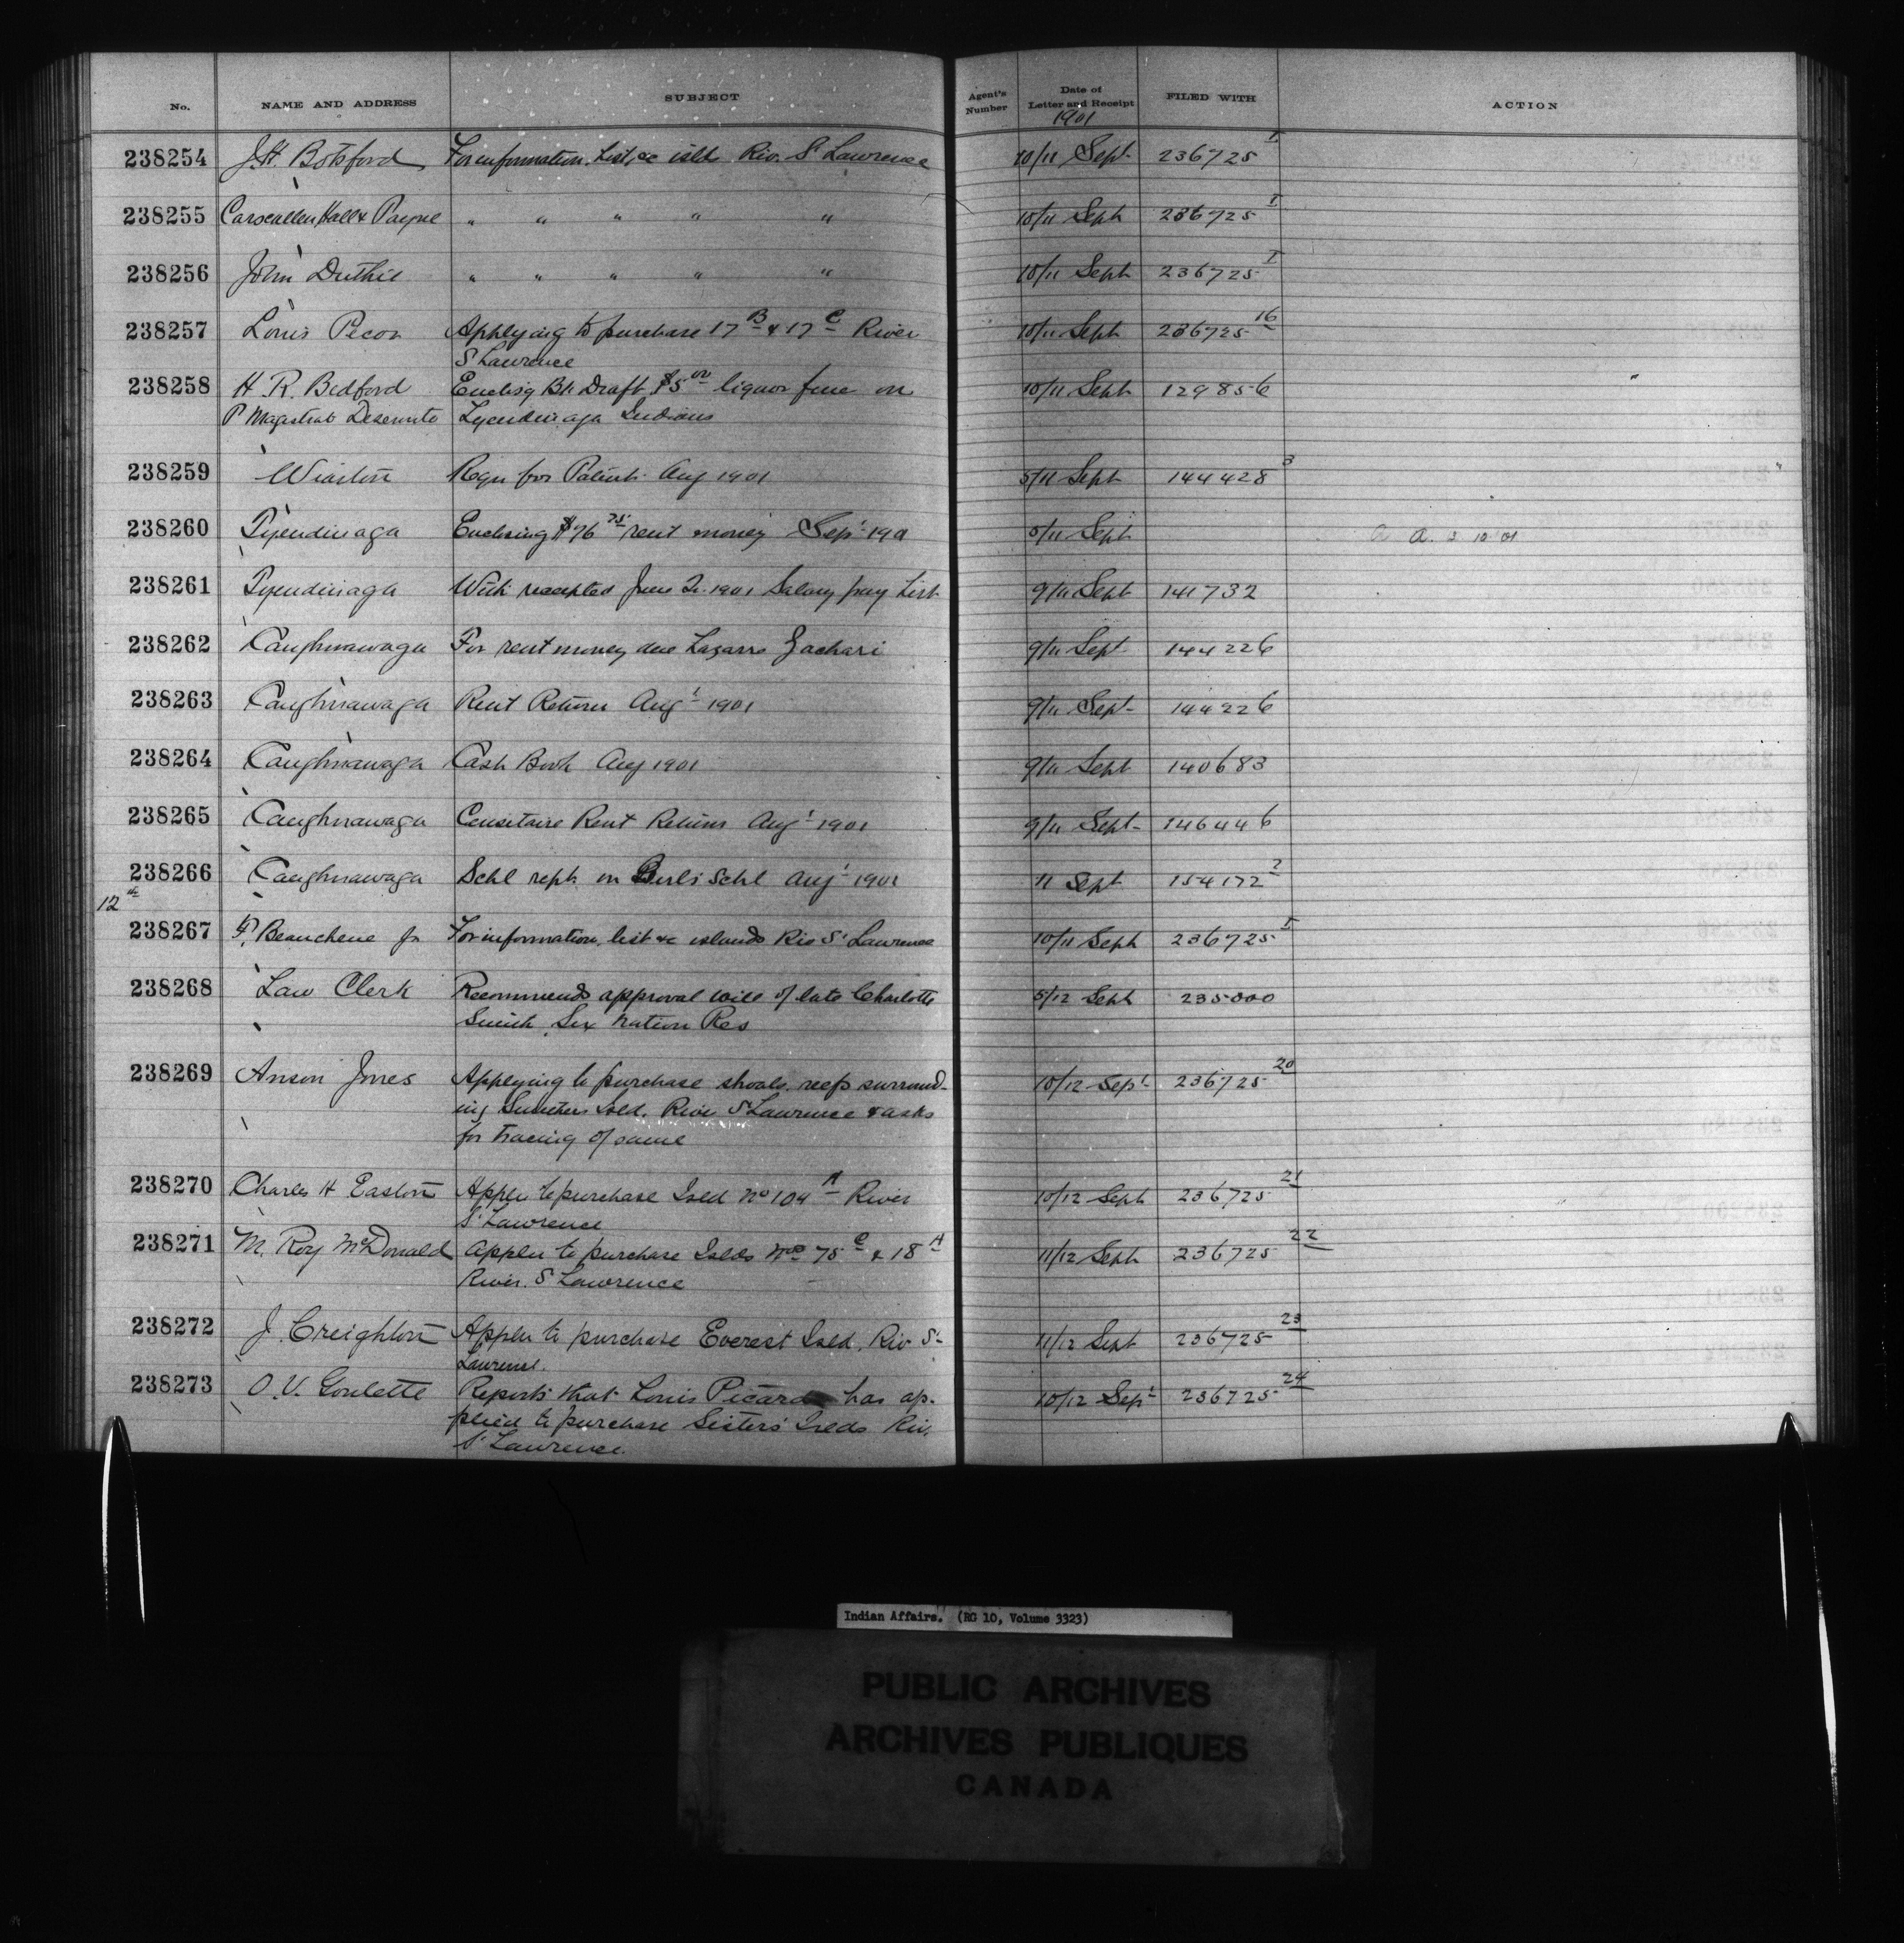 No. NAME AND ADDRESS SUBJECT Agent's Number Date of Letter and Receipt FILED WITH ACTION
1901
238254 J.H. Botsford For information, list, &c isld Riv. St Lawrence 10/11 Sept 236725 I
238255 Carscallen Hall & Payne " " " " " 10/11 Sept 236725 I
238256 John Duthie " " " " " 10/11 Sept 236725 I
238257 Louis Pecor Applying to purchase 17 B & 17 C River 10/11 Sept 236725 16
St Lawrence
238258 H. R. Bedford Enclosg Bk Draft $5 00 liquor fine on 10/11 Sept 129856
P Magistrate Deseronto Tyendinaga Indians
238259 Wiarton Requ for Patents Aug 1901 5/11 Sept 144428 3
238260 Tyendinaga Enclosing $76 75 rent money Sept 1901 5/11 Sept a a. 3 10 01
238261 Tyendinaga With receipted June Qr 1901 Salary pay List 9/11 Sept 141732
238262 Caughnawaga For rent money due Lazarre Zachari 9/11 Sept 144226
238263 Caughnawaga Rent Return Augt 1901 9/11 Sept 144226
238264 Caughnawaga Cash Book Aug 1901 9/11 Sept 140683
238265 Caughnawaga Censitaire Rent Return Augt 1901 9/11 Sept 146446
238266 Caughnawaga Schl rept on Burls Schl Augt 1901 11 Sept 154172 2
12th
238267 P. Beauchene Jr For information, list &c islands Riv St Lawrence 10/11 Sept 236725 I
238268 Law Clerk Recommends approval will of late Charlotte 5/12 Sept 235000
Smith, Six Nation Res
238269 Anson Jones Applying to purchase shoals, reefs surround- 10/12 Sept 236725 20
ing Isld. River St Lawrence & asks
for tracing of same
238270 Charles H Easton Applen to purchase Isld No 104 A River 10/12 Sept 236725 21
St Lawrence
238271 M. Roy McDonald Applen to purchase Islds Nos 75 C & 18 A 11/12 Sept 236725 22
River. St Lawrence
238272 J. Creighton Applen to purchase Everest Isld. Riv St 11/12 Sept 236725 23
Lawrence.
238273 O. V. Goulette Reports that Louis Picard has ap- 10/12 Sept 236725 24
plied to purchase Sisters' Islds Riv.
St Lawrence.
Indian Affairs. (RG 10, Volume 3323)
PUBLIC ARCHIVES
ARCHIVES PUBLIQUES
CANADA